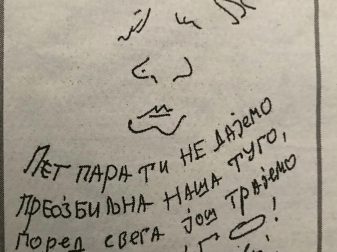 ПЕТ ПАРА ТИ НЕ ДАЈЕМО
ПРЕОЗБИЉНА НАША ТУГО,
ПОРЕД СВЕГА ЈОШ ТРАЈЕМО